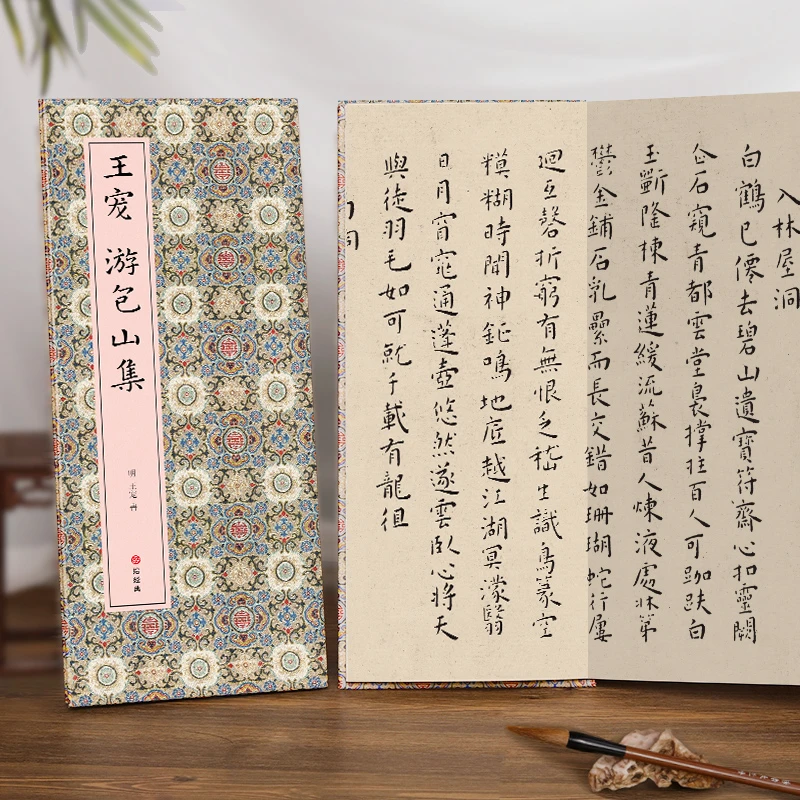 王宠 游包山集
明 王宠 书
拾经典
入林屋洞
白鶴已僊去碧山遺寶符齋心扣靈闕
企石窺青都雲堂裊撑拄百人可跏趺白
玉斲隆棟青蓮緩流蘇昔人煉液處牀第
鬱金鋪石乳纍而長交錯如珊瑚蛇行屢
迴互磬折窮有無恨乏嵇生識鳥篆空
模糊時聞神鉦鳴地底越江湖冥濛翳
日月窅窕通蓬壺悠然遂雲臥心將天
與徒羽毛如可就千載有龍徂